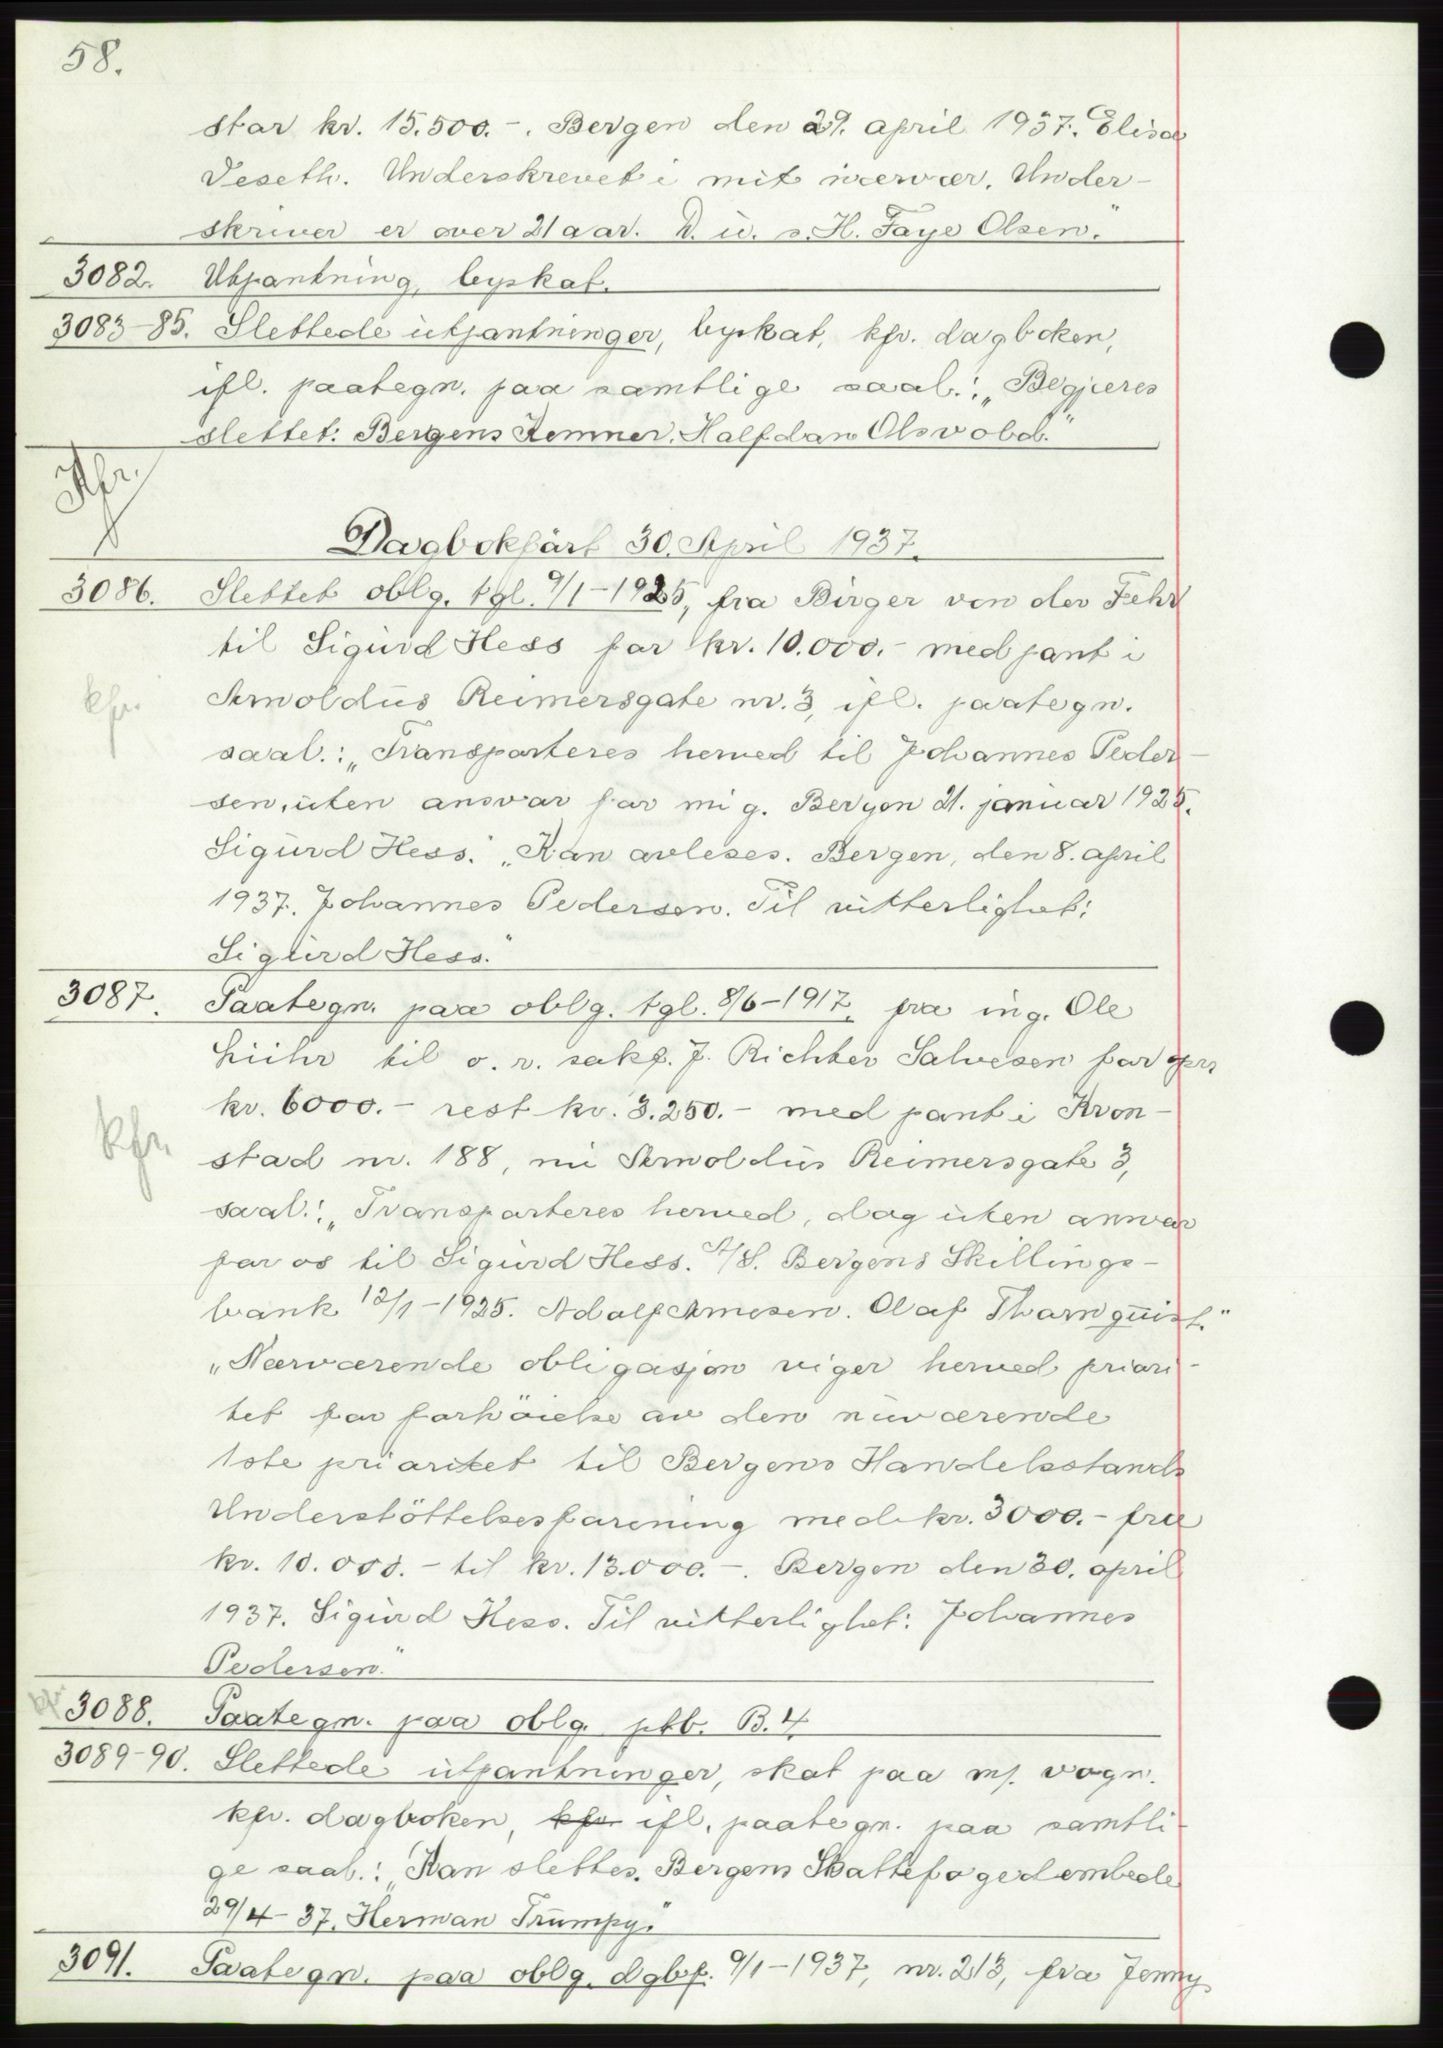 58.
stor kr. 15.500.-. Bergen den 29. april 1937. Elisa
Veseth. Underskrevet i mit nærvær. Under-
skriver er over 21 aar. D. u. s. H. Faye Olsen."
3082. Utpantning, byskat.
3083-85. Slettede utpantninger, byskat, kfr. dagboken,
ifl. paategn. paa samtlige saal.: „Begjæres
slettet: Bergens Kemner. Halfdan Olsvold."
Kfr.
Dagbokført 30. April 1937.
3086. Slettet oblg. tgl. 9/1-1925, fra Birger von der Fehr
til Sigurd Hess for kr. 10.000.- med pant i
kfr. Arnoldus Reimersgate nr. 3, ifl. paategn.
saal.: „Transporteres herved til Johannes Peder-
sen, uten ansvar for mig. Bergen 21. januar 1925.
Sigurd Hess." „Kan avleses. Bergen, den 8. april
1937. Johannes Pedersen. Til vitterlighet:
Sigurd Hess."
3087. Paategn. paa oblg. tgl. 8/6-1917, fra ing. Ole
Lühr til o. r. sakf. J. Richter Salvesen for opr.
kr. 6000.- rest kr. 3.250.- med pant i Kron-
kfr. stad nr. 188, nu Arnoldus Reimersgate 3,
saal.: „Transporteres herved, dog uten ansvar
for os til Sigurd Hess. A/S. Bergens Skillings-
bank 12/1-1925. Adolf Arnesen. Olaf Thornquist."
„Nærværende obligasjon viger herved priori-
tet for forhöielse av den nuværende
1ste prioritet til Bergens Handelsstands
Understöttelsesforening med kr. 3000.- fra
kr. 10.000.- til kr. 13.000.-. Bergen den 30. april
1937. Sigurd Hess. Til vitterlighet: Johannes
Pedersen."
kfr. 3088. Paategn. paa oblg. ptb. B. 4
3089-90. Slettede utpantninger, skat paa m/. vogn.
kfr. dagboken, kfr. ifl. paategn. paa samtli-
ge saal.: „Kan slettes. Bergens Skattefogedembede
29/4-37. Herman Trumpy."
3091. Paategn. paa oblg. dgbf. 9/1-1937, nr. 213, fra Jenny